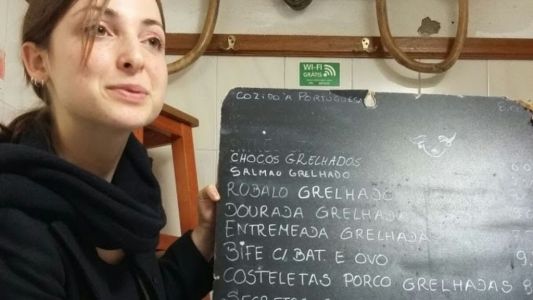 WI-FI
GRÁTIS
COZIDO À PORTUGUESA
CHOCOS GRELHADOS
SALMÃO GRELHADO
ROBALO GRELHADO
DOURADA GRELHADA
ENTREMEADA GRELHADA
BIFE C/ BAT. E OVO
COSTELETAS PORCO GRELHADAS